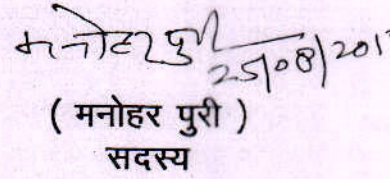 मनोहर पुरी
25/08/201
( मनोहर पुरी )
सदस्य